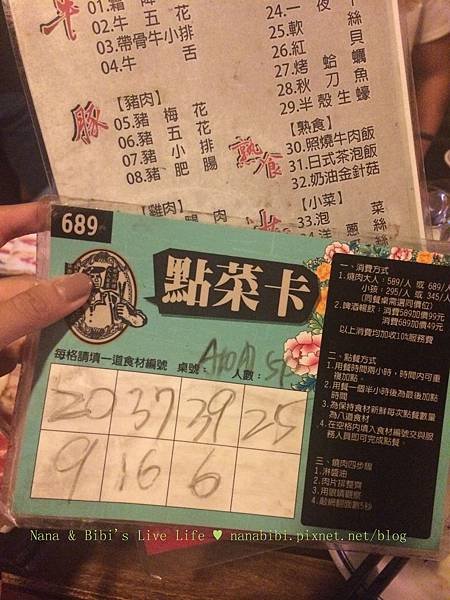 牛
01.霜降
02.牛五花
03.帶骨牛小排
04.牛舌
豚
【豬肉】
05.豬梅花
06.豬五花
07.豬小排
08.豬肥腸
【雞肉】
24.一夜干
25.軟絲
26.紅
27.烤蛤蠣
28.秋刀魚
29.半殼生蠔
熟食
【熟食】
30.照燒牛肉飯
31.日式茶泡飯
32.奶油金針菇
【小菜】
33.泡菜
洋蔥絲
689
點菜卡
每格請填一道食材編號 桌號: 人數: 5
20 37 39 25
9 16 6
一、消費方式
1.燒肉大人:589/人 或 689/人
小孩:295/人 或 345/人
(同餐桌需選同價位)
2.啤酒暢飲:消費589加價99元
消費689加價49元
以上消費均加收10%服務費
二、點餐方式
1.用餐時間兩小時,時間內可重複加點。
2.用餐一個半小時後為最後加點時間
3.為保持食材新鮮每次點餐數量為八道食材
4.在空格内填入食材編號交與服務人員即可完成點餐。
三、燒肉四步驟
1.淋醬油
2.肉片排整齊
3.用眼睛觀察
Nana & Bibi's Live Life ♥ nanabibi.pixnet.net/blog